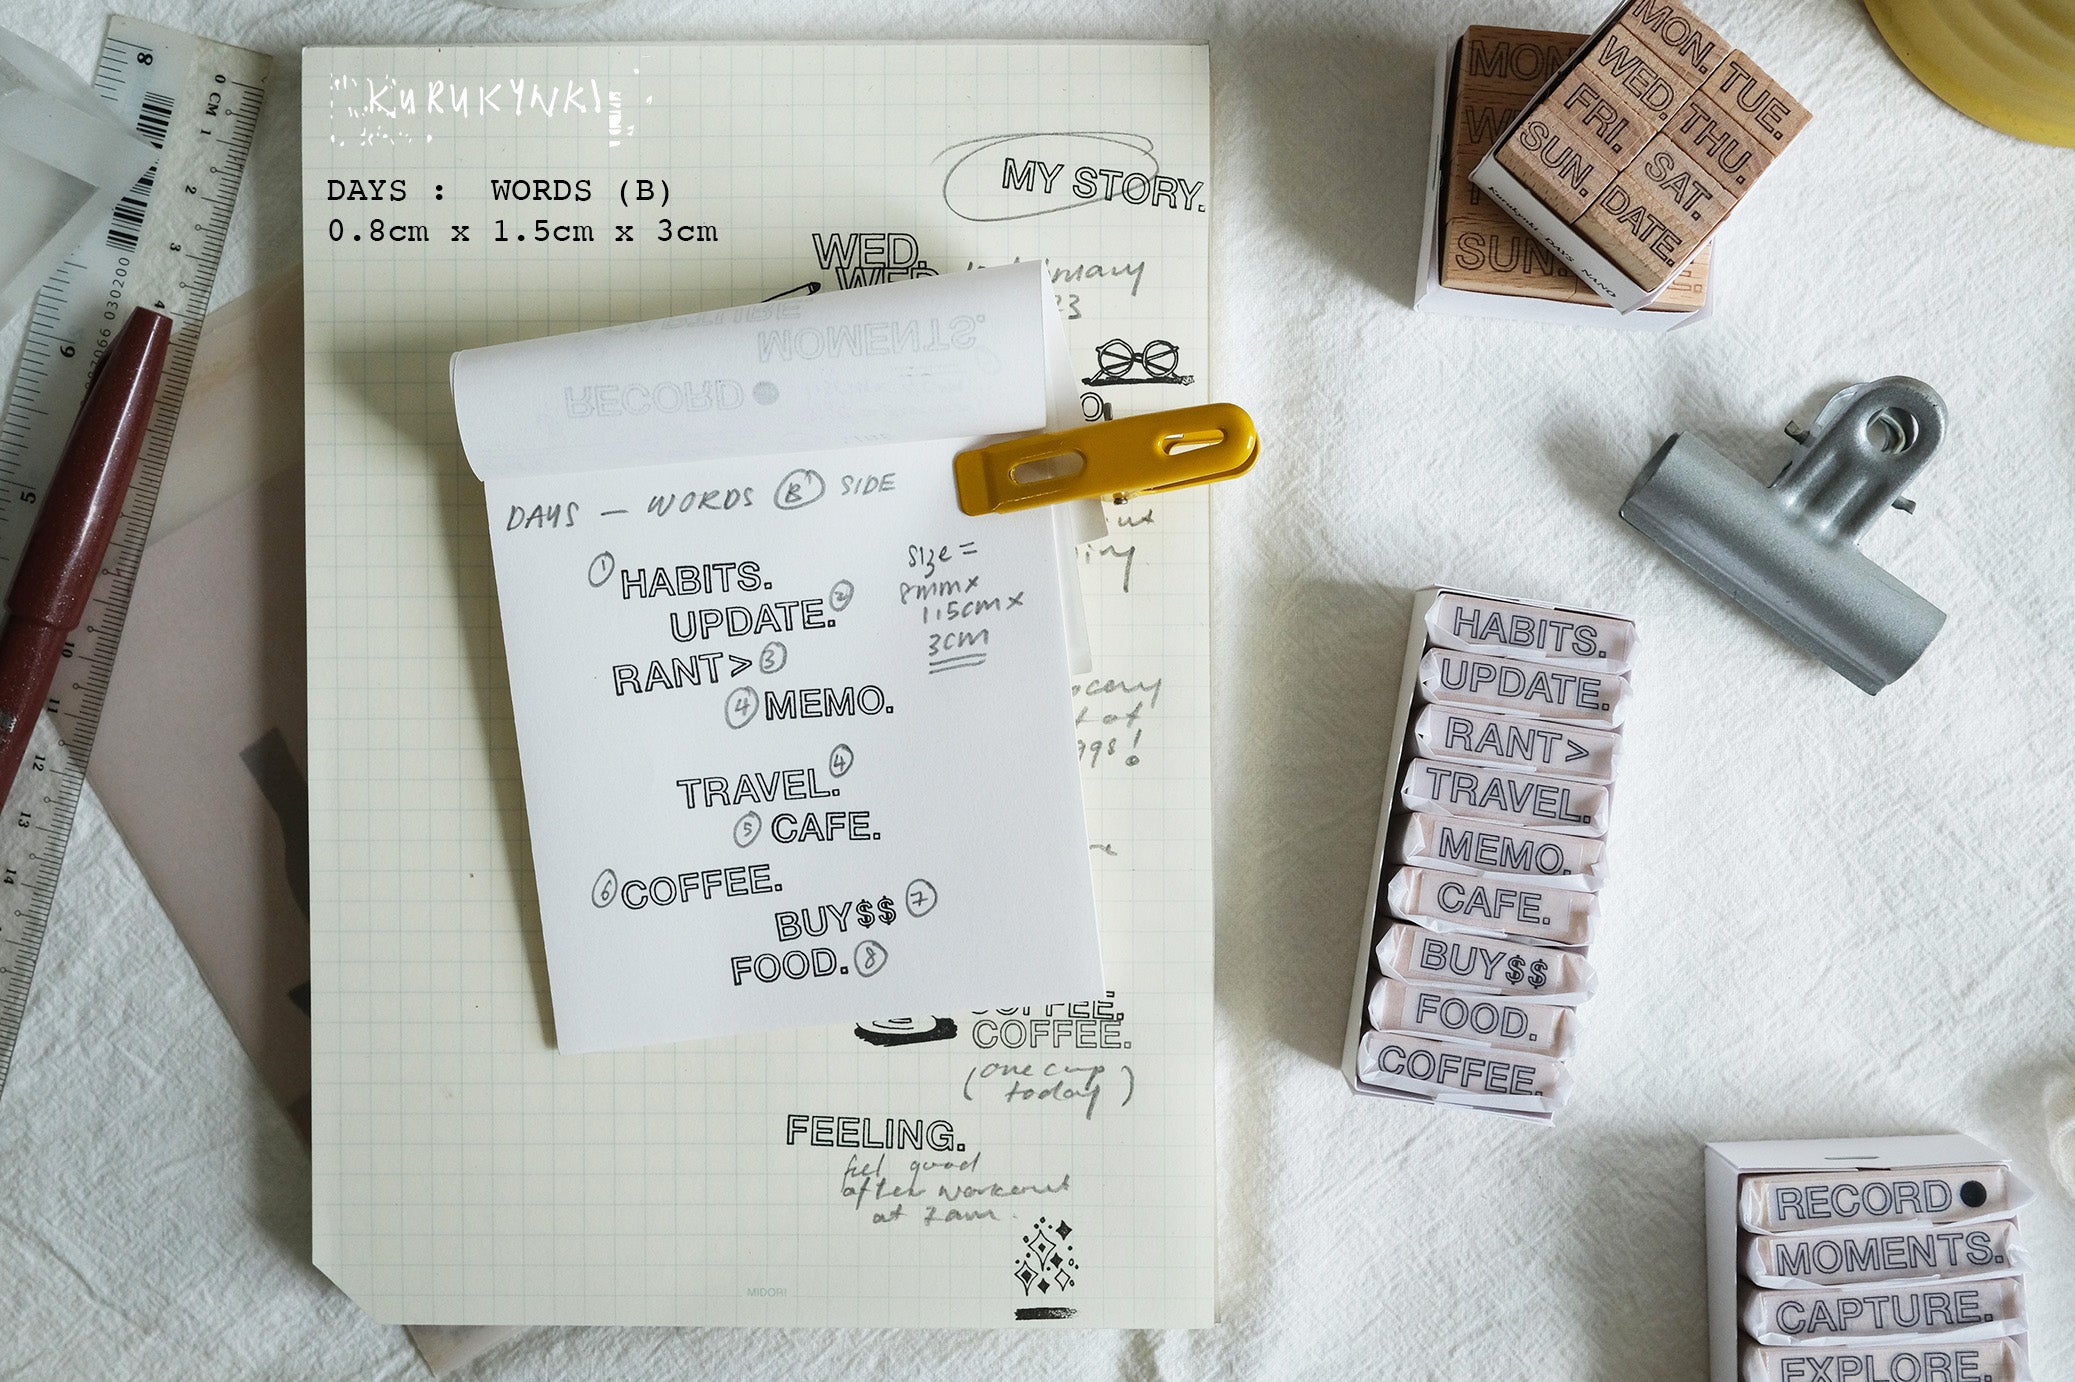 KURUKYNKI
DAYS : WORDS (B)
0.8cm x 1.5cm x 3cm
MY STORY.
WED.
WED.
23
MOMENTS.
RECORD
DAYS — WORDS B' SIDE
size =
8mm x
1.5cm x
3cm
1 HABITS.
UPDATE. 2
RANT> 3
4 MEMO.
TRAVEL. 4
5 CAFE.
6 COFFEE.
BUY$$ 7
FOOD. 8
COFFEE.
COFFEE.
(one cup
today)
FEELING.
feel good
after workout
at 7am.
MIDORI
MON. TUE.
WED. THU.
FRI. SAT.
SUN. DATE.
Kurukynki DAYS NANO
MON
W
SUN.
HABITS.
UPDATE.
RANT>
TRAVEL.
MEMO.
CAFE.
BUY$$
FOOD.
COFFEE.
RECORD
MOMENTS.
CAPTURE.
EXPLORE.
0 CM 1
2
3
4
5
10
11
12
13
14
8
6
5
0097066 030200